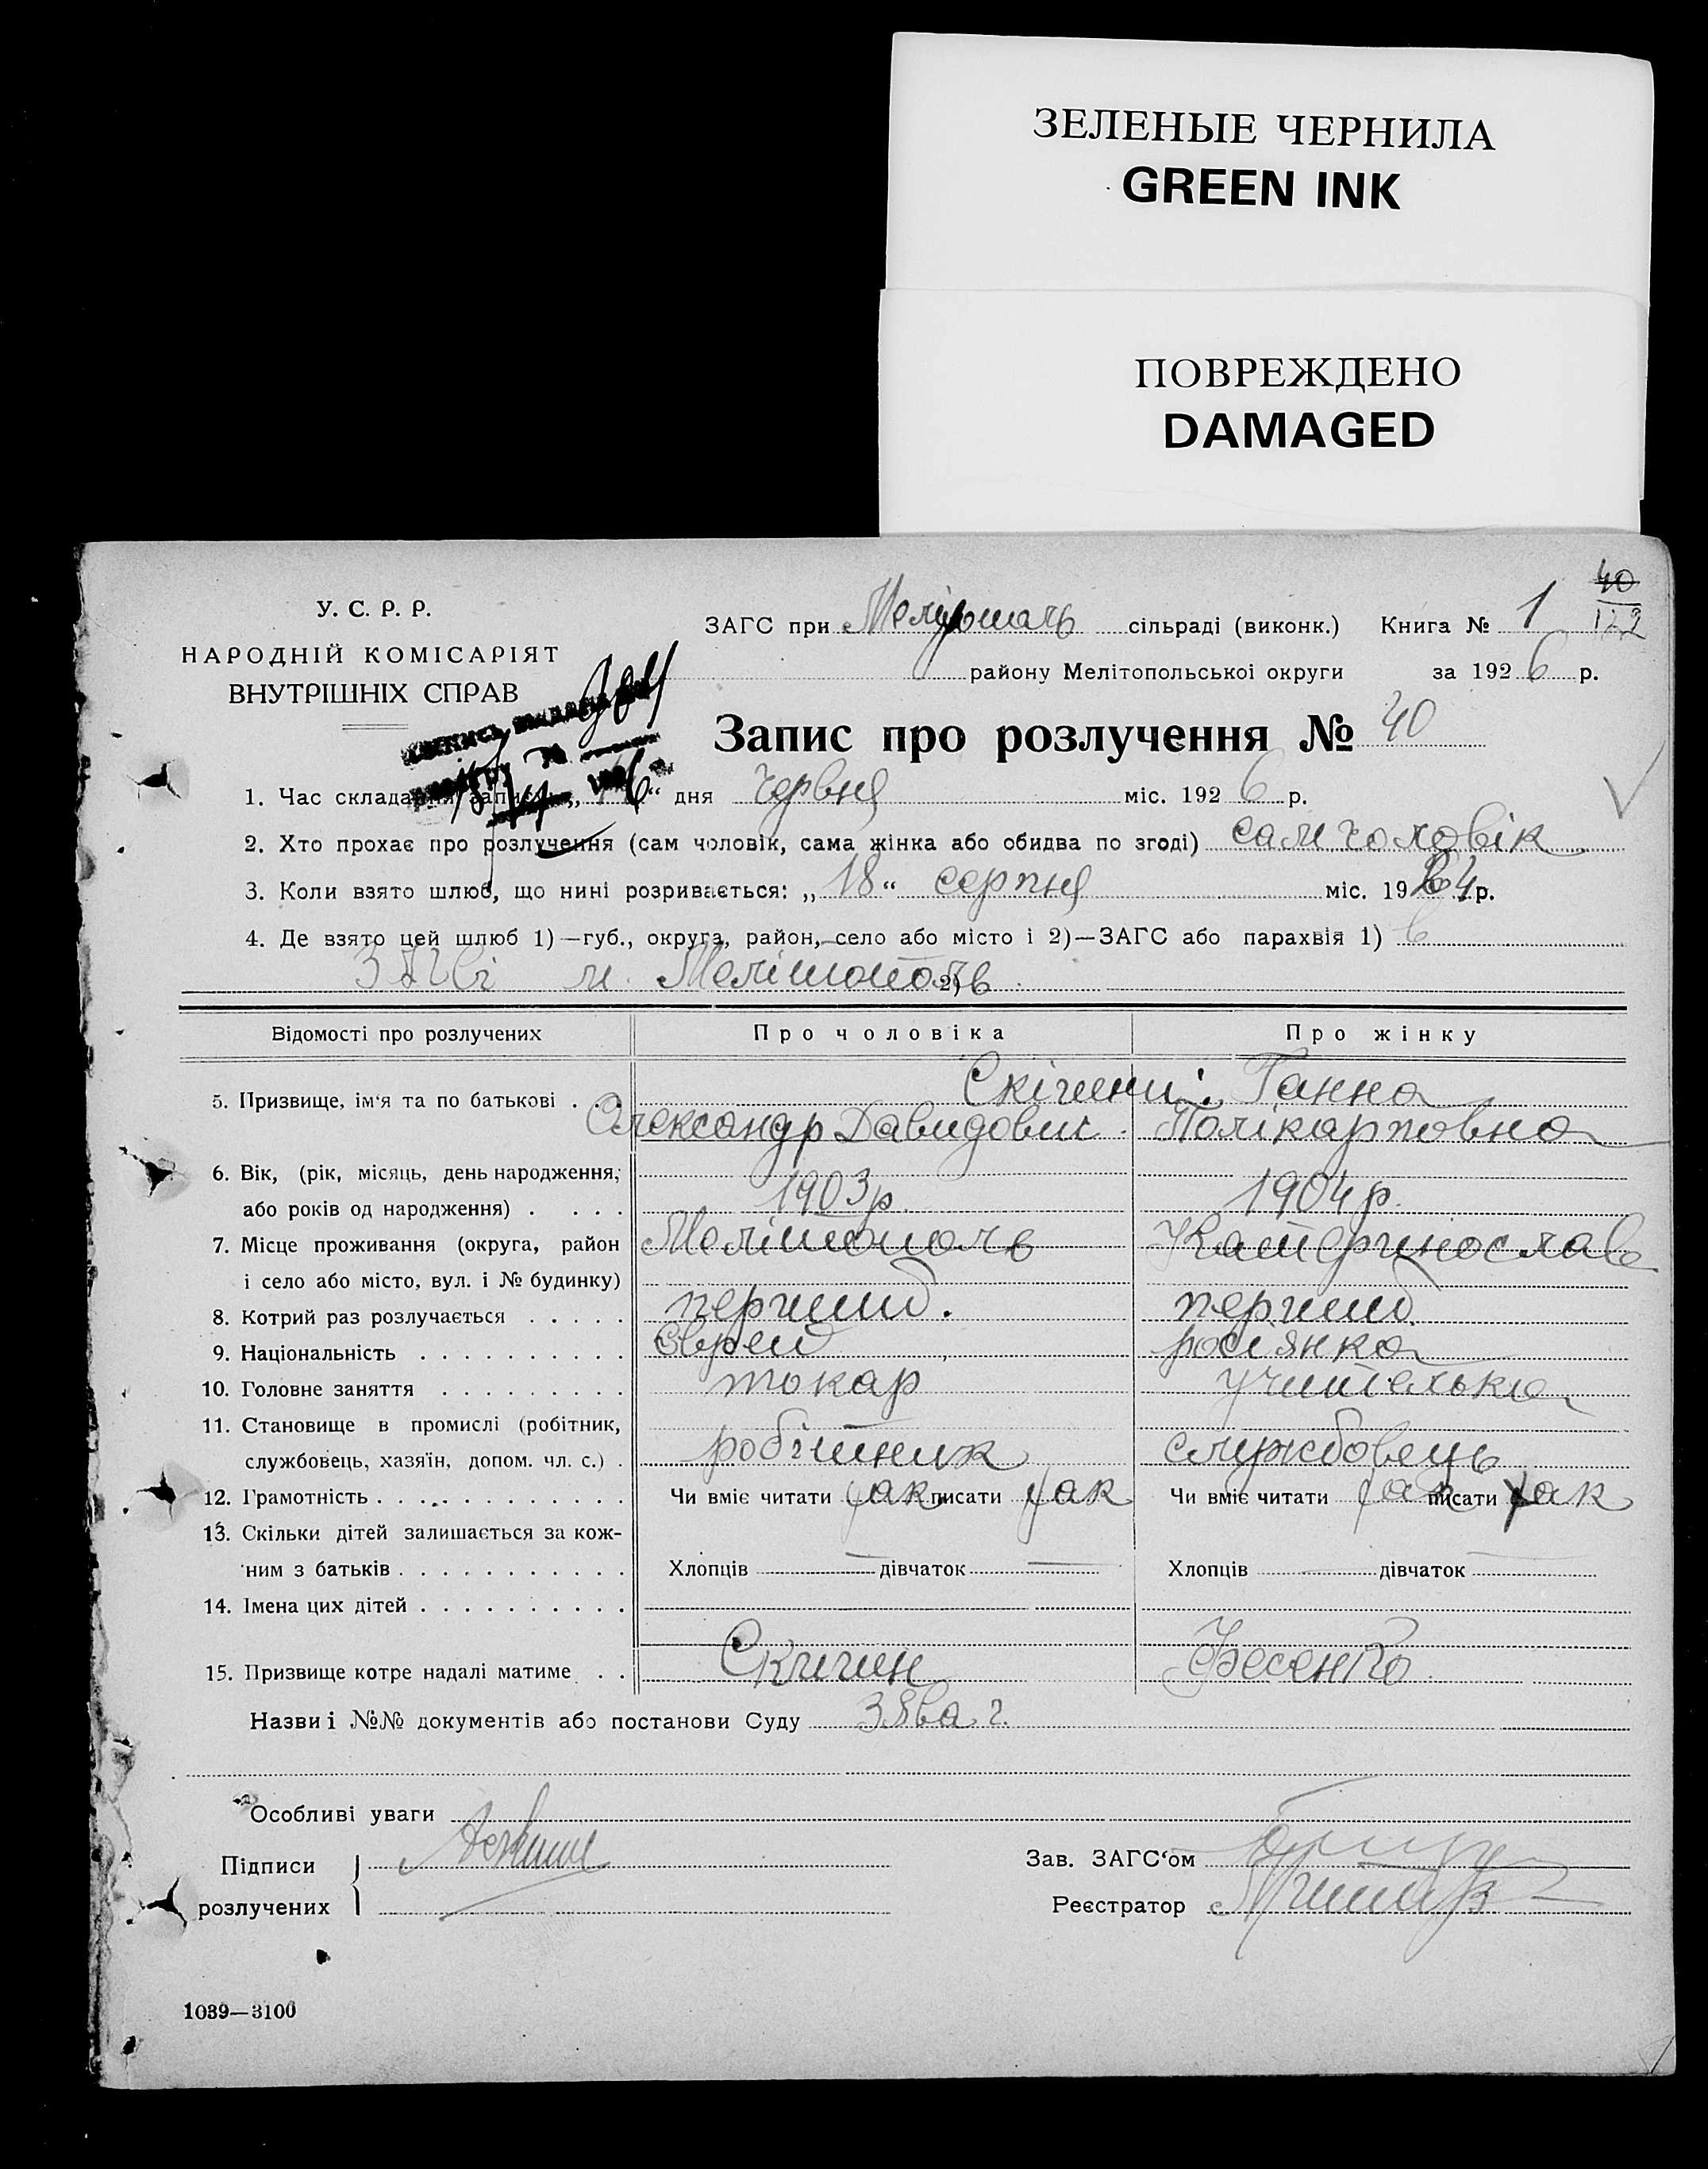 ЗЕЛЕНЫЕ ЧЕРНИЛА
GREEN INK
ПОВРЕЖДЕНО
DAMAGED
40
122
У. С. Р. Р.
НАРОДНІЙ КОМІСАРІЯТ
ВНУТРІШНІХ СПРАВ
ЗАГС при сільраді (виконк.) Книга № 1
району Мелітопольської округи за 1926 р.
Запис про розлучення № 40
1. Час складання запису „ “ дня Червня міс. 1926 р.
2. Хто прохає про розлучення (сам чоловік, сама жінка або обидва по згоді) сам чоловік
3. Коли взято шлюб, що нині розривається: „18“ серпня міс. 1924 р.
4. Де взято цей шлюб 1)—губ., округа, район, село або місто і 2)—ЗАГС або парахвія 1) в
ЗАГСі м. Мелітополь 2)
Відомості про розлучених Про чоловіка Про жінку
5. Призвище, ім'я та по батькові . . . Скічини: Ганна
Олександр Давидович. Полікарповна
6. Вік, (рік, місяць, день народження,
або років од народження) . . . . 1903 р. 1904 р.
7. Місце проживання (округа, район Мелітополь Катеринослав
і село або місто, вул. і № будинку)
8. Котрий раз розлучається . . . . . перший. перший.
9. Національність . . . . . . . . . . Єврей росіянка
10. Головне заняття . . . . . . . . . токар учителька
11. Становище в промислі (робітник,
службовець, хазяїн, допом. чл. с.) . робітник службовець
12. Грамотність . . . . . . . . . . . . Чи вміє читати так писати так Чи вміє читати так писати так
13. Скільки дітей залишається за кож-
ним з батьків . . . . . . . . . . . Хлопців — дівчаток — Хлопців — дівчаток —
14. Імена цих дітей . . . . . . . . . .
15. Призвище котре надалі матиме . . Скичин Фесенко
Назви і №№ документів або постанови Суду Заява
Особливі уваги
Підписи
розлучених
Зав. ЗАГС'ом
Реєстратор
1039—3100